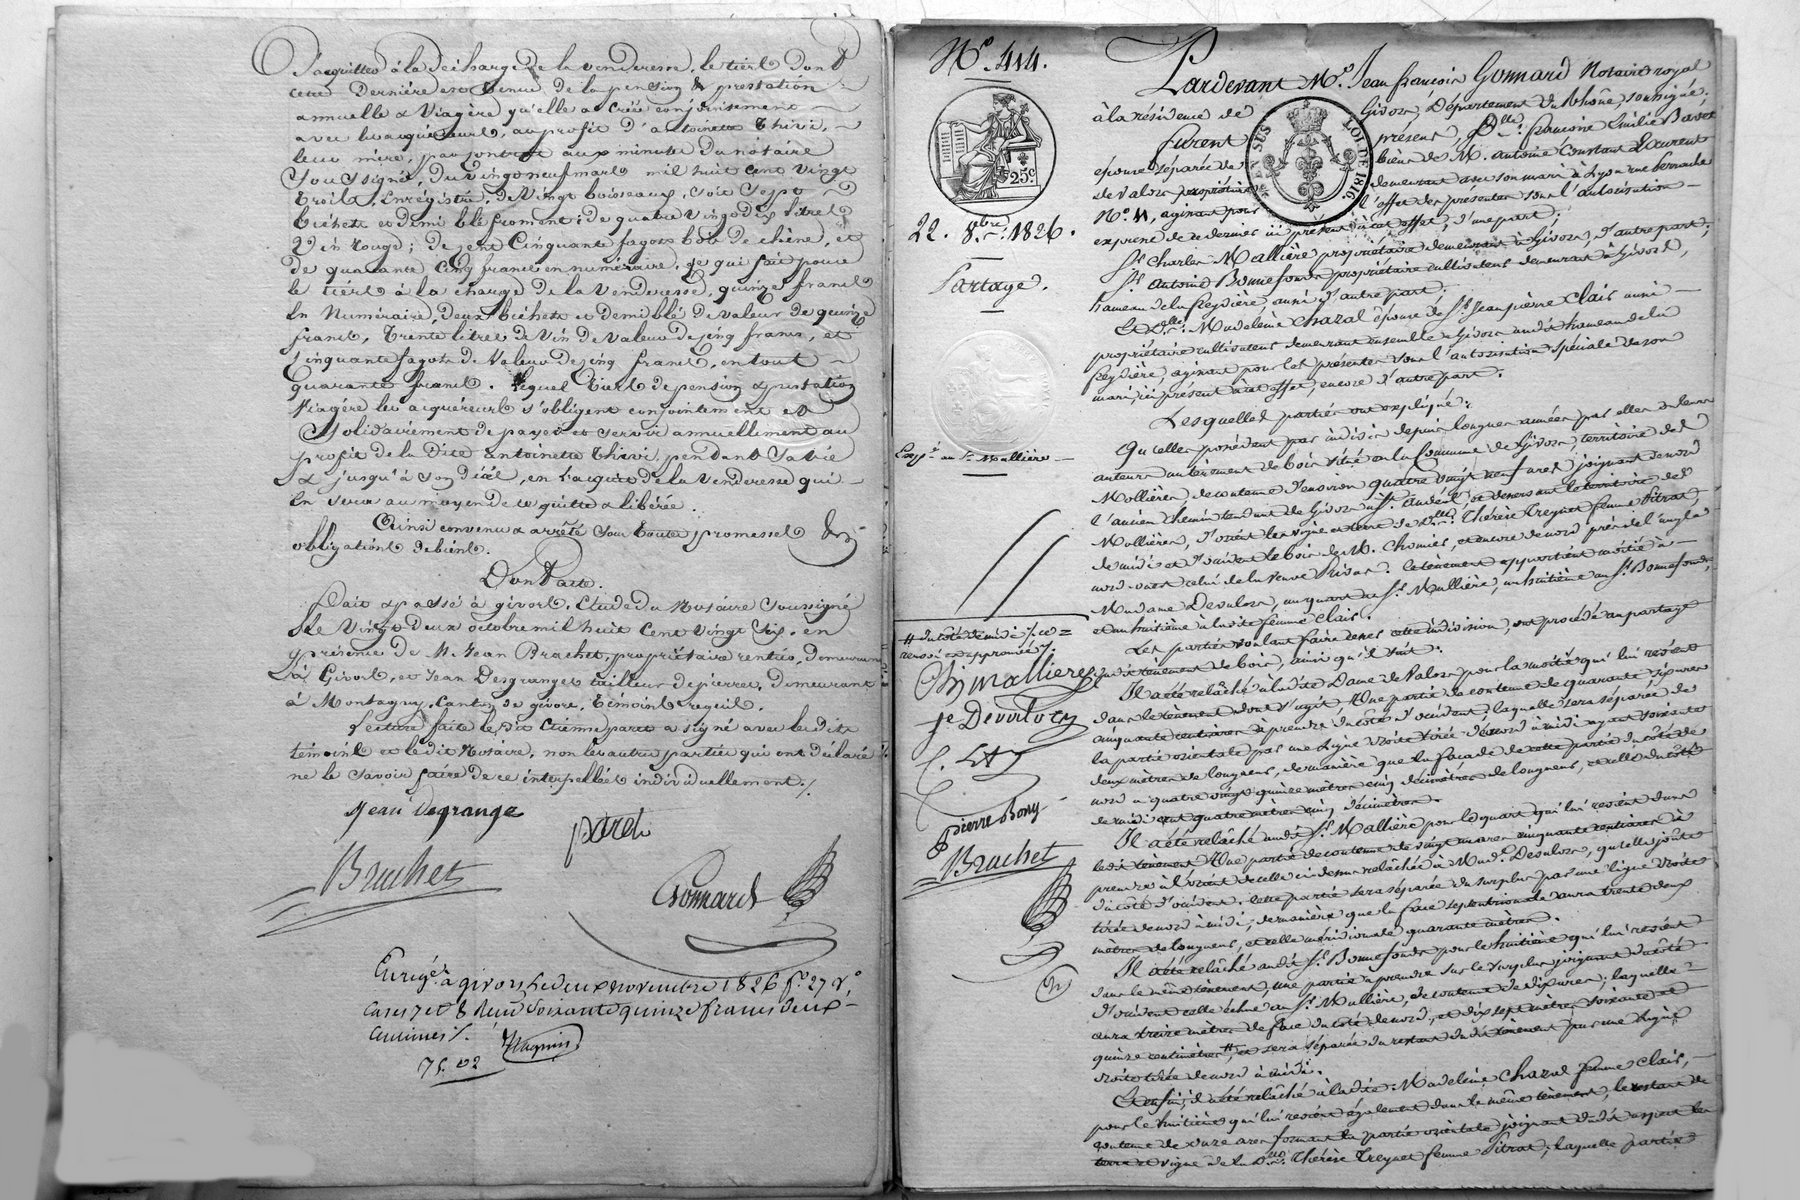 D'acquitter à la décharge de la venderesse, le tiers dont
cette dernière est tenue, de la pension & prestation
annuelle & viagère qu'elle a créée conjointement
avec les acquéreurs, au profit d'antoinette Thivi,
leur mère, par contrat aux minutes du notaire
Soussigné, du vingt neuf mars mil huit cent vingt
trois, Enrégistré, de vingt boisseaux, soit Sept
bichets et demi blé froment; de quatre vingt dix litres
vin rouge; de cent Cinquante fagots bois de chêne, et
de quarante cinq francs en numéraire. Ce qui fait pour
le tiers à la charge de la venderesse, quinze francs
En Numéraire, deux bichets et demi blé de valeur de quinze
francs, trente litres de vin de valeur de cinq francs, et
Cinquante fagots de valeur de cinq francs, en tout
quarante francs. Lequel tiers de pension & prestation
viagère les acquéreurs s'obligent conjointement et
Solidairement de payer et servir annuellement au
profit de la dite Antoinette Thivi, pendant sa vie
& jusqu'à son décès, en l'acquit de la venderesse qui
En sera au moyen de ce quitte & libérée.
Ainsi convenu & arrêté sous toutes promesses
obligations de biens.
Dont acte.
Fait & passé à givors, Etude du Notaire soussigné
Le vingt deux octobre mil huit Cent vingt Six. en
présence de M. Jean Brachet, propriétaire rentier, demeurant
à Givors, et Jean Desgranges tailleur de pierres, demeurant
à Montagny, Canton de givors, témoins requis.
Lecture faite ledit Etienne paret a signé avec lesdits
témoins et ledit Notaire, non les autres parties qui ont déclaré
ne le savoir faire de ce interpellés individuellement./.
Jean degrange
paret
Brachet
Gonnard
Enregé à givors, le deux novembre 1826 fo. 27 v.
cases 7 et 8 reçu soixante quinze francs deux
centimes /.
75. 02
No. 414.
25c
22. 8bre. 1826.
Partage.
Exp. au Sr. Mallière
# du côté de midi /. ce
renvoi est approuvé /.
Ch Mallière
Pierre Bony
Brachet
Pardevant Me. Jean françois Gonnard Notaire royal
à la résidence de Givors, Département du Rhône, soussigné.
furent présens, Dlle. francoise Emilie
LOI DE 1816.
épouse séparée de biens de M. Antoine Constant Laurent
de Valors propriétaire demeurant avec son mari à Lyon rue
No. 11, agissant pour l'effet des présentes sous l'autorisation
expresse de ce dernier ici présent à cet effet, d'une part;
Sr. Charles Mallière propriétaire demeurant à Givors, d'autre part;
Sr. Antoine Bonnefonds propriétaire cultivateur demeurant à Givors,
hameau de la freydière, aussi d'autre part;
Et Dlle. Madeleine Chazal épouse de Sr. Jean pierre Clais aussi
propriétaire cultivateur demeurant ensemble à Givors audit hameau de la
freydière, agissant pour les présentes sous l'autorisation spéciale de son
mari ici présent à cet effet, encore d'autre part.
Lesquelles parties ont expliqué:
Qu'elles possèdent par indivis depuis longues années par elles ou leurs
auteurs un tènement de bois situé en la Commune de Givors, territoire des
Mollières, de contenue d'environ quatre vingt neuf ares, joignant de nord
l'ancien chemin tendant de Givors à St. Andéol,
Mollières, d'orient les vigne et terre de Dlle. Thérèse Treynet femme Pitrat,
de midi et d'occident le bois de M. Chomier, et encore de nord près de l'angle
nord-ouest celui de la veuve Rivas. Ce tènement appartient moitié à
Madame Devalors, un quart au Sr. Mallière, un huitième au Sr. Bonnefonds,
et un huitième à ladite femme Clais.
Les parties voulant faire cesser cette indivision, ont procédé au partage
dudit tènement de bois, ainsi qu'il suit:
Il a été relâché à ladite Dame de Valors pour la moitié qui lui revient
dans le tènement dont s'agit, Une partie de contenue de quarante six ares
cinquante centiares à prendre du côté d'occident, laquelle sera séparée de
la partie orientale par une ligne droite tirée de nord à midi ayant soixante
deux mètres de longueur, de manière que la façade de cette partie du côté de
nord a quatre vingt quinze mètres cinq décimètres de longueur, et celle du côté
de midi cent quatre mètres cinq décimètres.
Il a été relâché audit Sr. Mallière pour le quart qui lui revient dans
ledit tènement Une partie de contenue de vingt un ares cinquante centiares à
prendre à l'orient de celle ci-dessus relâchée à Made. Devalors, qu'elle joint
du côté d'occident. Cette partie sera séparée du surplus par une ligne droite
tirée de nord à midi, de manière que la face septentrionale aura trente deux
mètres de longueur, et celle méridionale quarante mètres.
Il a été relâché audit Sr. Bonnefonds pour le huitième qui lui revient
dans le même tènement, une partie à prendre sur le surplus joignant du côté
d'occident celle échue au Sr. Mallière, de contenue de dix ares; laquelle
aura treize mètres de face du côté de nord, et dix sept mètres soixante et
quinze centimètres #, et sera séparée du restant dudit tènement par une ligne
droite tirée de nord à midi.
Et enfin, il a été relâché à ladite Madeleine Chazal femme Clais,
pour le huitième qui lui revient également dans le même tènement, le restant de
contenue de onze ares formant la partie orientale joignant
terre et vigne de la Dlle. Thérèse Treynet femme Pitrat; laquelle partie